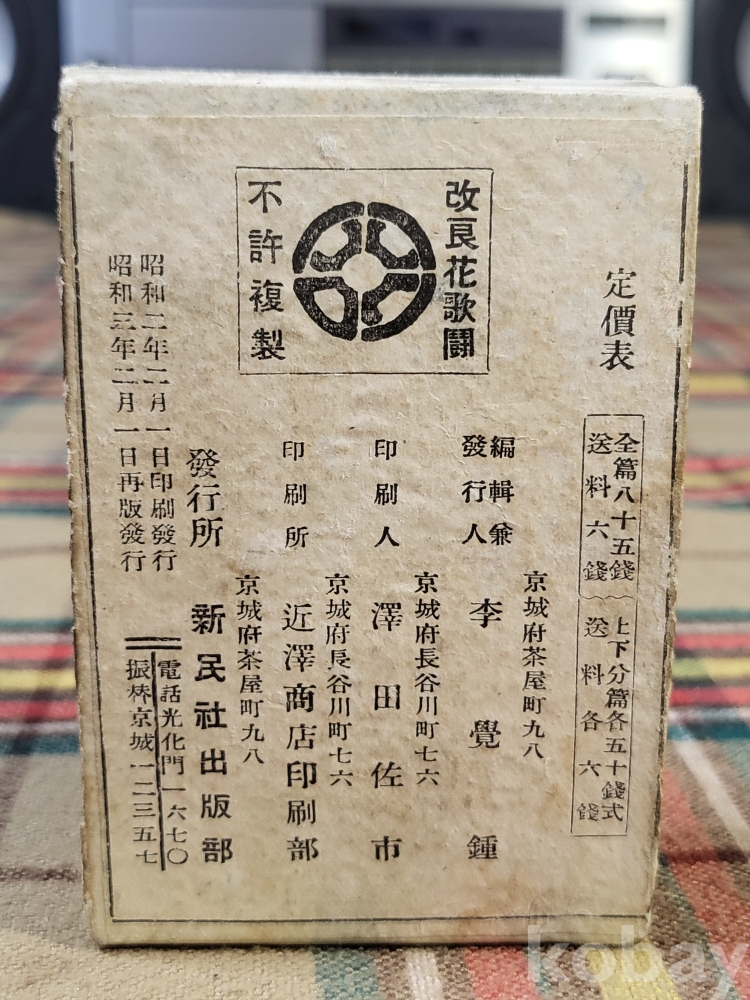 改良花歌鬪
不許複製
定價表
全篇八十五錢
送料六錢
上下分篇各五十錢式
送料各六錢
京城府茶屋町九八
編輯兼
發行人
李覺鍾
京城府長谷川町七六
印刷人
澤田佐市
京城府長谷川町七六
印刷所
近澤商店印刷部
京城府茶屋町九八
發行所
新民社出版部
電話光化門一六七〇
振替京城一二三五七
昭和二年二月一日印刷發行
昭和三年二月一日再版發行
kobay